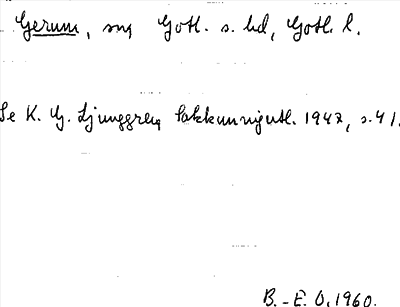 Gerum, sn, Gotl. s. hd, Gotl. l.
Se K. G. Ljunggren, Sakkunnigutl. 1947, s. 41.
B.-E. O. 1960.